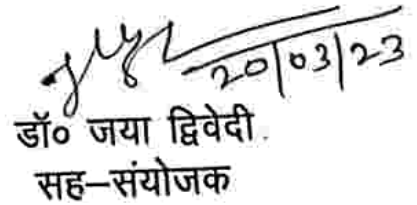 20/03/23
डॉ० जया द्विवेदी.
सह-संयोजक